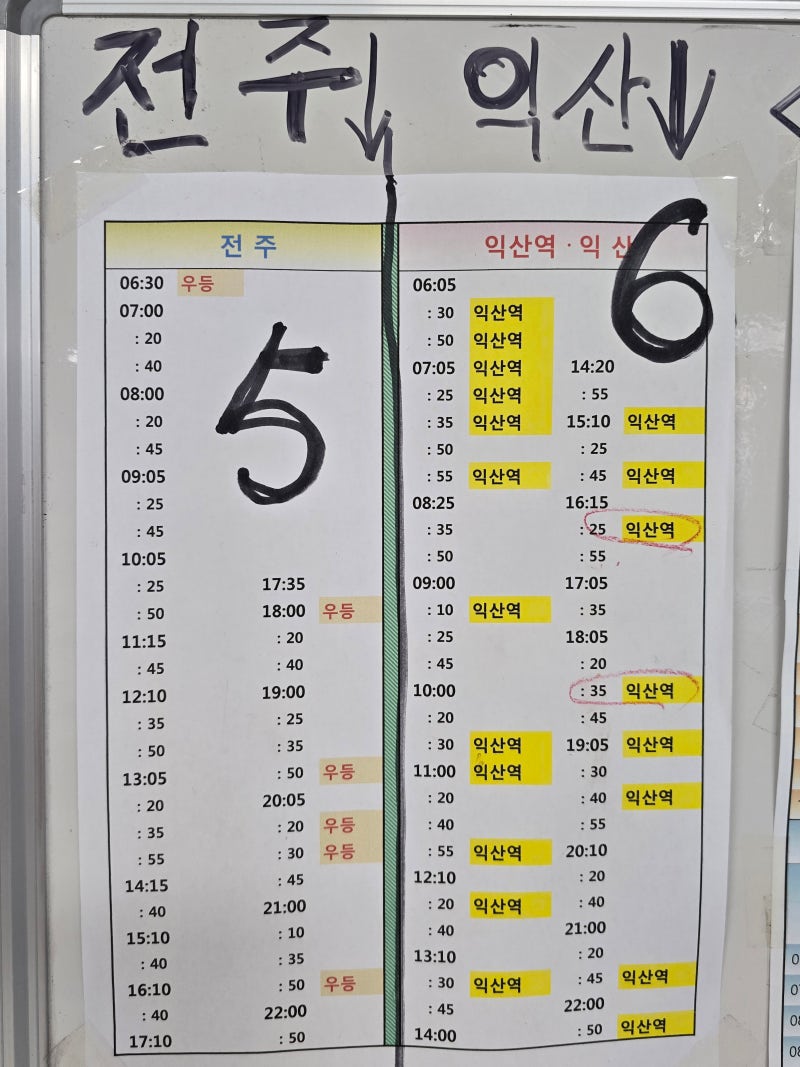 전주↓ 익산↓
전 주
06:30 우등
07:00
: 20
: 40
08:00
: 20
: 45
09:05
: 25
: 45
10:05
: 25
: 50
11:15
: 45
12:10
: 35
: 50
13:05
: 20
: 35
: 55
14:15
: 40
15:10
: 40
16:10
: 40
17:10
5
17:35
18:00 우등
: 20
: 40
19:00
: 25
: 35
: 50 우등
20:05
: 20 우등
: 30 우등
: 45
21:00
: 10
: 35
: 50 우등
22:00
: 50
익산역 · 익 산
6
06:05
: 30 익산역
: 50 익산역
07:05 익산역
: 25 익산역
: 35 익산역
: 50
: 55 익산역
08:25
: 35
: 50
09:00
: 10 익산역
: 25
: 45
10:00
: 20
: 30 익산역
11:00 익산역
: 20
: 40
: 55 익산역
12:10
: 20 익산역
: 40
13:10
: 30 익산역
: 45
14:00
14:20
: 55
15:10 익산역
: 25
: 45 익산역
16:15
: 25 익산역
: 55
17:05
: 35
18:05
: 20
: 35 익산역
: 45
19:05 익산역
: 30
: 40 익산역
: 55
20:10
: 20
: 40
21:00
: 20
: 45 익산역
22:00
: 50 익산역